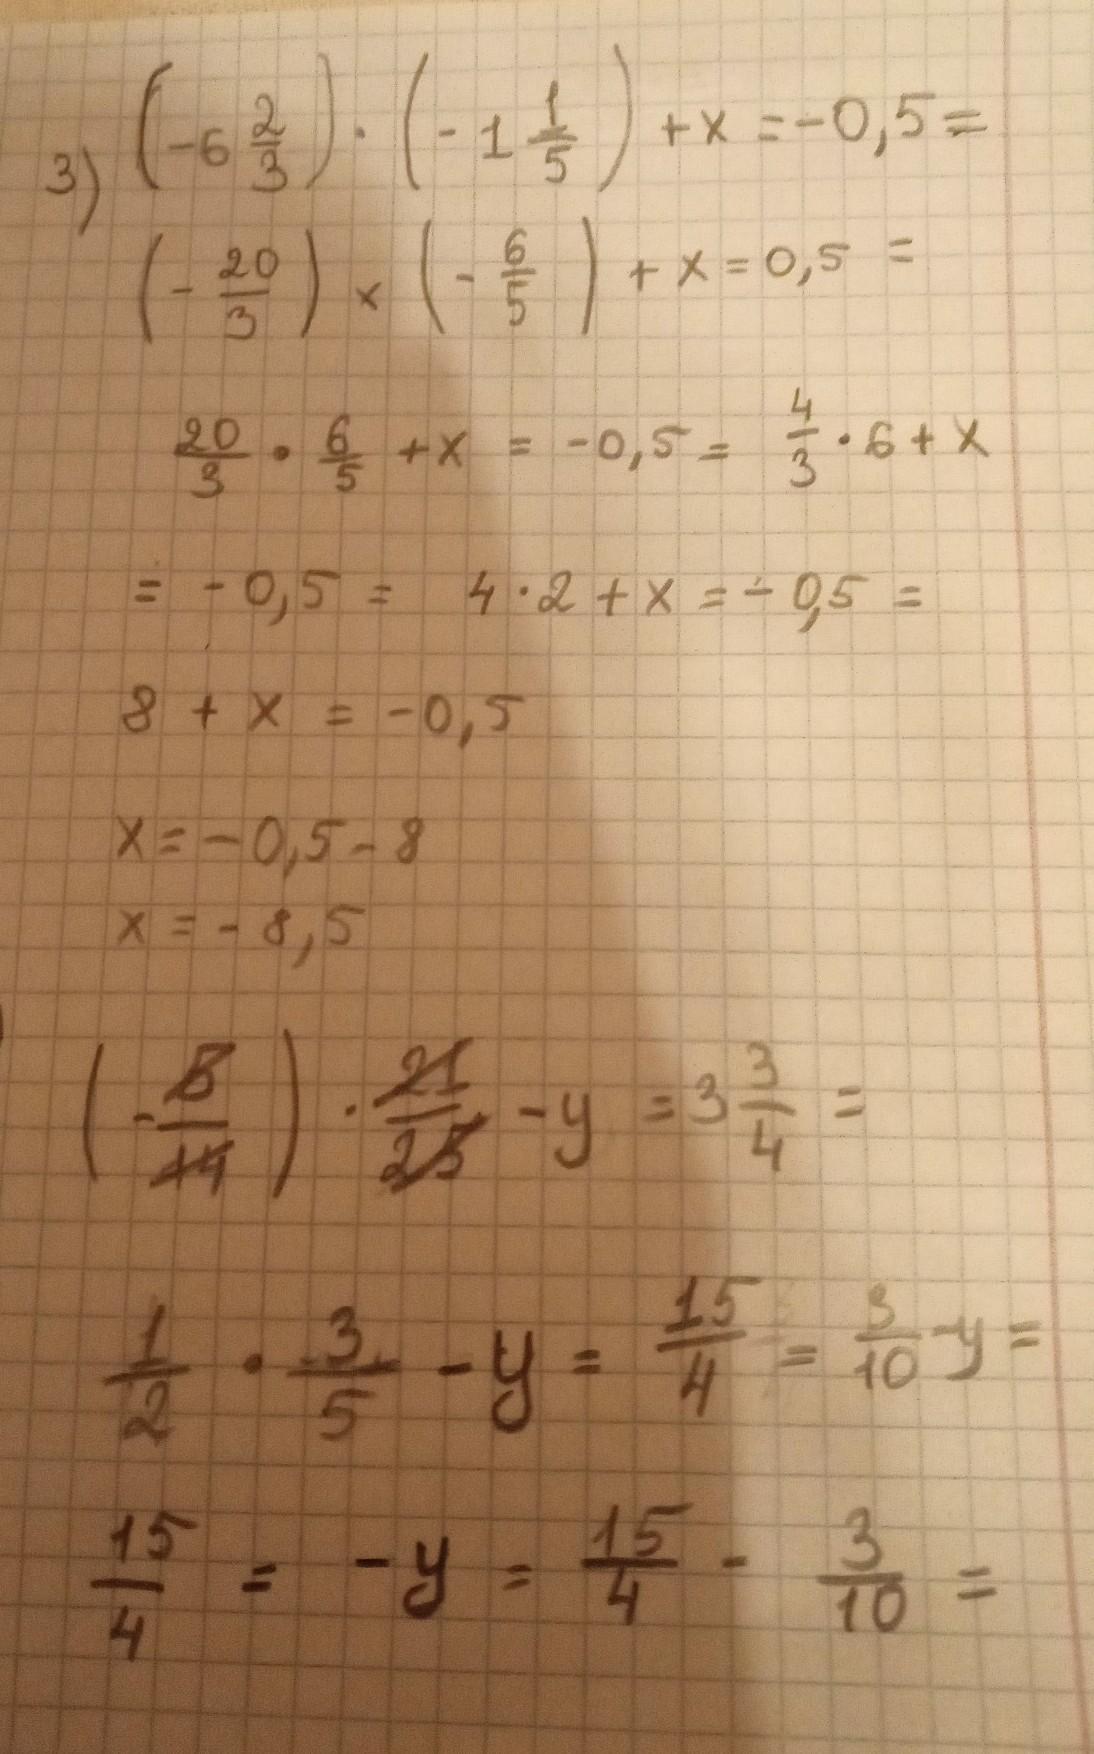 3) (-6 2/3) · (-1 1/5) + x = -0,5 =
(- 20/3) × (- 6/5) + x = 0,5 =
20/3 · 6/5 + x = -0,5 = 4/3 · 6 + x
= -0,5 = 4 · 2 + x = -0,5 =
8 + x = -0,5
x = -0,5 - 8
x = -8,5
(- 5/14) · 21/25 - y = 3 3/4 =
1/2 · 3/5 - y = 15/4 = 3/10 - y =
15/4 = -y = 15/4 - 3/10 =